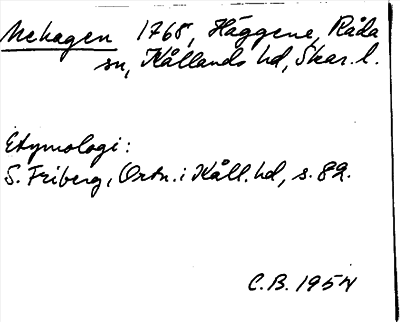 Nehagen 1765, Häggene, Råda
sn, Kållands hd, Skar. l.
Etymologi:
S. Friberg, Ortn. i Kåll. hd, s. 82.
C.B. 1954